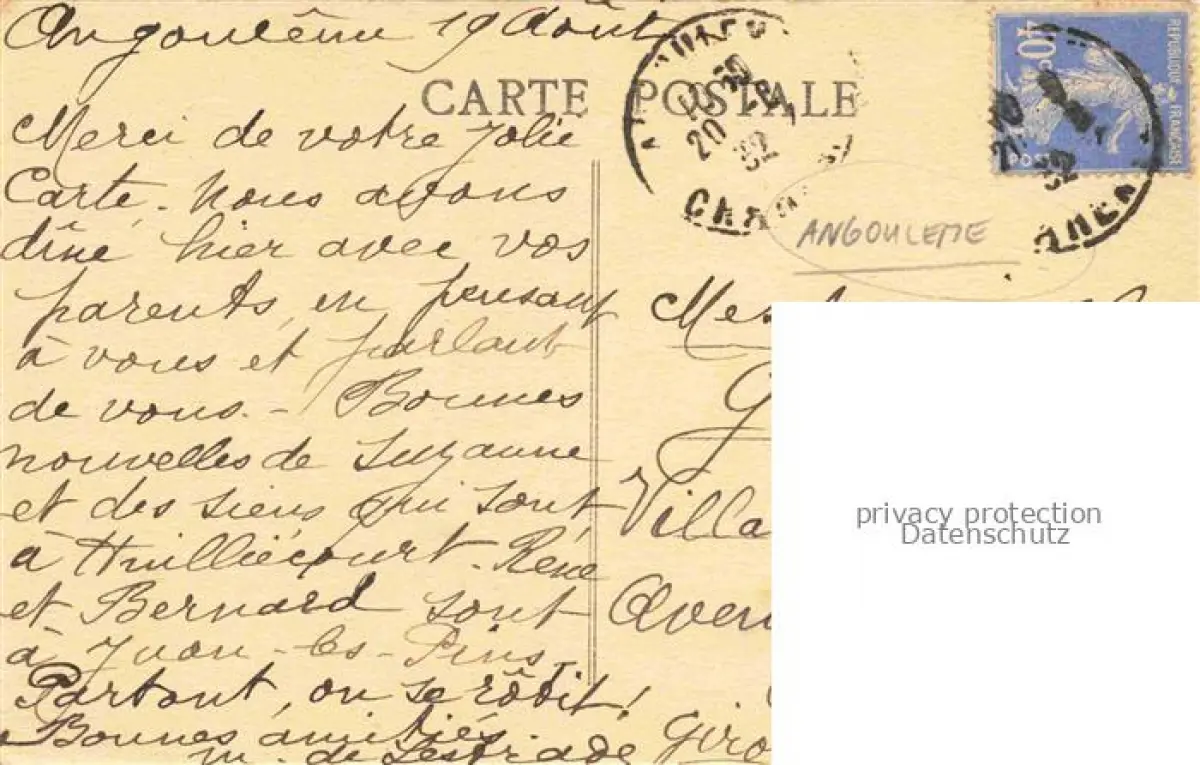 Angoulême 19 Août
CARTE POSTALE
Merci de votre jolie
Carte. Nous avons
dîné hier avec vos
parents, en pensant
à vous et parlant
de vous. - Bonnes
nouvelles de Suzanne
et des siens qui sont
à Huilliécourt. René
et Bernard sont
à Juan-les-Pins.
Partout, on se rôtit!
Bonnes amitiés.
M. de Lestrade
20
32
40c
REPUBLIQUE FRANÇAISE
ANGOULEME
Villa
Giro
privacy protection
Datenschutz